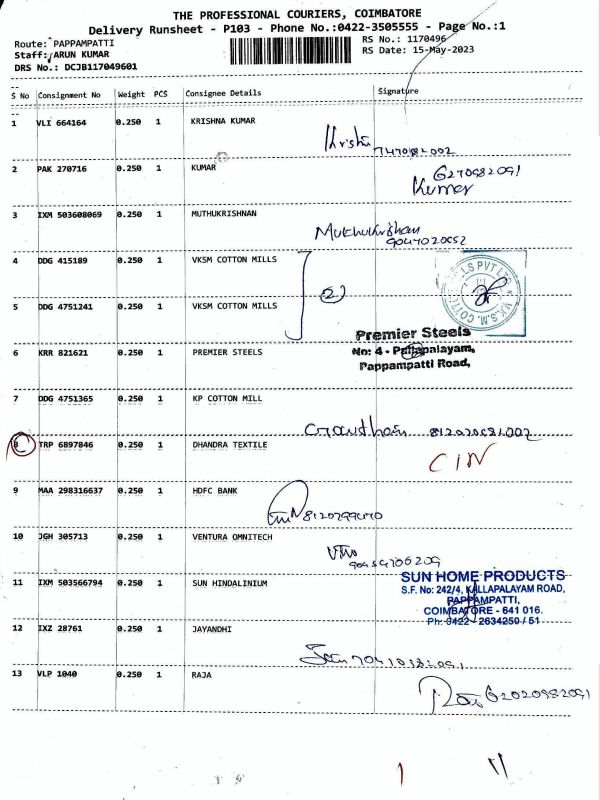 THE PROFESSIONAL COURIERS, COIMBATORE
Delivery Runsheet - P103 - Phone No.:0422-3505555 - Page No.:1
Route: PAPPAMPATTI
RS No.: 1170496
Staff: ARUN KUMAR
RS Date: 15-May-2023
DRS No.: DCJB117049601
S No Consignment No Weight PCS Consignee Details Signature
1 VLI 664164 0.250 1 KRISHNA KUMAR
2 PAK 270716 0.250 1 KUMAR
6270982091
Kumar
3 IXM 503608069 0.250 1 MUTHUKRISHNAN
Muthukrishnan
4 DDG 415189 0.250 1 VKSM COTTON MILLS
2
5 DDG 4751241 0.250 1 VKSM COTTON MILLS
Premier Steels
No: 4 - Pallapalayam,
Pappampatti Road,
6 KRR 821621 0.250 1 PREMIER STEELS
7 DDG 4751365 0.250 1 KP COTTON MILL
8 TRP 6897846 0.250 1 DHANDRA TEXTILE
C/N
9 MAA 298316637 0.250 1 HDFC BANK
10 JGH 305713 0.250 1 VENTURA OMNITECH
11 IXM 503566794 0.250 1 SUN HINDALINIUM
SUN HOME PRODUCTS
S.F. No: 242/4, KALLAPALAYAM ROAD,
PAPPAMPATTI,
COIMBATORE - 641 016.
Ph: 0422 - 2634250 / 51
12 IXZ 28761 0.250 1 JAYANDHI
13 VLP 1040 0.250 1 RAJA
6202098209